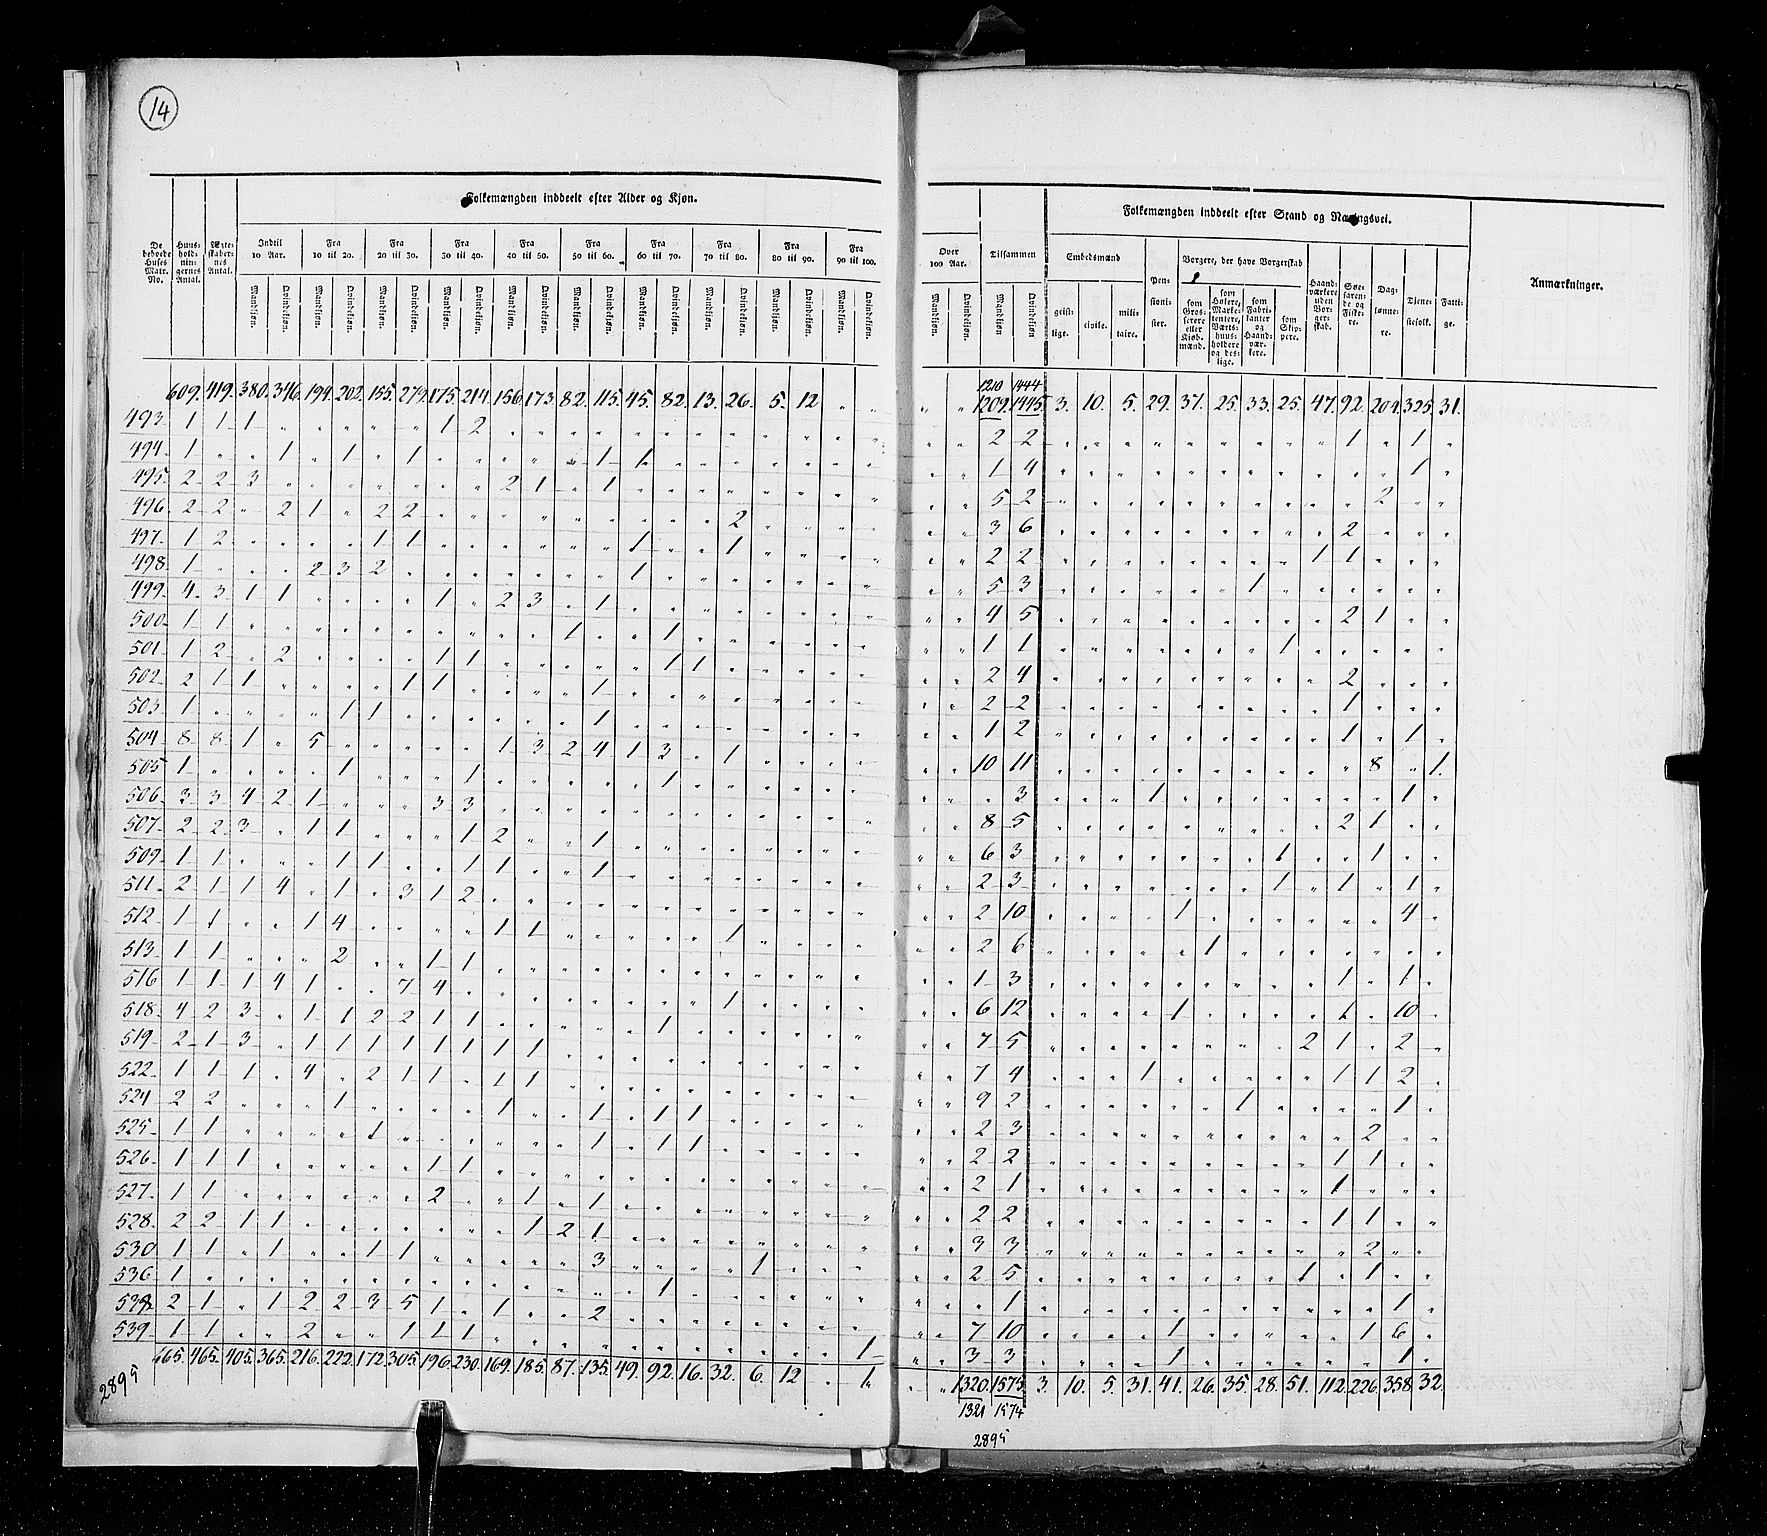 14
Folkemængden inddeelt efter Alder og Kjøn.
De beboede Huses Matr. No. Huus-hold-nin-gernes Antal. Ægte-skaber-nes Antal. Indtil 10 Aar. Fra 10 til 20. Fra 20 til 30. Fra 30 til 40. Fra 40 til 50. Fra 50 til 60. Fra 60 til 70. Fra 70 til 80. Fra 80 til 90. Fra 90 til 100.
Mandkjøn. Qvindekjøn. Mandkjøn. Qvindekjøn. Mandkjøn. Qvindekjøn. Mandkjøn. Qvindekjøn. Mandkjøn. Qvindekjøn. Mandkjøn. Qvindekjøn. Mandkjøn. Qvindekjøn. Mandkjøn. Qvindekjøn. Mandkjøn. Qvindekjøn. Mandkjøn. Qvindekjøn.
609. 419. 380. 346. 194. 202. 155. 279. 175. 214. 156. 173. 82. 115. 45. 82. 13. 26. 5. 12 " "
493. 1 1 1 " " " " " 1 2 " " " " " " " " " " " "
494. 1 " " 1 " 1 " 1 " " " " " 1 1 " " " " " " "
495. 2 2 3 " " " " " " " 2 1 " 1 " " " " " " " "
496. 2 2 " 2 1 " 2 2 " " " " " " " " " 2 " " " "
497. 1 2 " " " " 1 1 " " " " " " 1 " " 1 " " " "
498. 1 " " " 2 3 2 " " " " " " " 1 " " " " " " "
499. 4 3 1 1 " " " " 1 " 2 3 " 1 " " " " " " " "
500. 1 1 " " " " " " " " " " 1 " " 1 " " " " " "
501. 1 2 " 2 " " " " 1 1 " " " " " 1 1 " " " " "
502. 2 1 1 " " " " 1 1 " " " " 1 " " " " " " " "
503. 1 " " " " 1 1 " " " " " " 1 " " " " " " " "
504. 8 8 1 " 5 " " " " " 1 3 2 4 1 3 " 1 " " " "
505. 1 " " " " 1 " " " 1 " " " " " 1 " " " " " "
506. 3 3 4 2 1 " " " 3 3 " " " " " " " " " " " "
507. 2 2 3 " 1 1 " " " 1 2 " " 1 " " " " " " " "
509. 1 1 " " " 1 1 " " 1 1 " " 1 " " " " " " " "
511. 2 1 1 4 " 1 " 3 1 2 " " " " " " " " " " " "
512. 1 1 " " 1 4 " " " " 1 1 " " " " " 1 " " " "
513. 1 1 " " " 2 " " 1 1 " " " " " " " " " " " "
516 1 1 1 4 1 " " 7 4 " " " " " " " " 1 " " " "
518. 4 2 3 " 1 1 2 2 1 1 " " " " " 1 " " " " " "
519. 2 1 3 " 1 1 1 1 1 1 1 1 " " " " " " " " " "
522. 1 1 1 " 4 " 2 1 1 " 1 1 " " " " " " " " " "
524 2 2 " " " 1 " " " " 1 " " 1 " 1 1 " " " " "
525. 1 1 " " " " 1 " " " " " " 1 " 1 1 " " " " "
526. 1 1 1 " " " " " 1 1 " " " " " " " " " " " "
527. 1 1 " " " " " " 2 " " 1 " 1 " " " " " " " "
528. 2 2 1 1 " " " " " " " 1 2 1 " " " " " " " "
530 1 1 " 1 " " 1 1 " " " " " 3 " " " " 1 " " "
536 1 " " " " " " " " " " " " " " 1 " " " " " "
2 1 " 1 2 2 3 5 1 " 1 " " 2 " " " " " " " "
539. 1 1 " " 2 " " 1 1 1 " " " " " " " " " " " 1
665. 465. 405. 365. 216. 222. 172. 305. 196. 230. 169. 185. 87. 135. 49. 92. 16. 32. 6. 12 " 1.
2895
Folkemængden inddeelt efter Stand og Næringsvei.
Over 100 Aar. Tilsammen Embedsmænd Pen-sioni-ster. Borgere, der have Borgerskab Haand-værkere uden Bor-ger-skab. Søe-faren-de og Fiske-re. Dag-lønne-re. Tiene-stefolk. Fatti-ge. Anmærkninger.
Mandkjøn Qvindekjøn. Mandkjøn Qvindekjøn geist-lige. civile. mili-taire. som Gros-serere eller Kjøb-mænd. som Høkere, Marke-tentere, Værts-huus-holdere og des-lige. som Fabri-kanter og Haand-vær-kere. som Skip-pere.
1210 1444
" " 1209. 1445. 3. 10. 5. 29. 37. 25. 33. 25. 47. 92. 204. 325. 31.
" " 2 2 " " " " " " " " " 1 " 1 "
" " 1 4 " " " " " " " " " " " 1 "
" " 5 2 " " " " " " " " " " 2 " "
" " 3 6 " " " " " " " " " 2 " " "
" " 2 2 " " " " " " " " 1 1 " " "
" " 5 3 " " " " " " 1 " " " " " "
" " 4 5 " " " " " " " " " 2 1 " "
" " 1 1 " " " " " " " 1 " " " " "
" " 2 4 " " " " " " " " " 2 " " "
" " 2 2 " " " " " " " " " 1 " " "
" " 1 2 " " " " " " " " " 1 " 1 "
" " 10 11 " " " " " " " " " " 8 " 1.
" " " 3 " " " 1 " " " " " " " 1 "
" " 8 5 " " " " " " " " " 2 1 " "
" " 6 3 " " " " " " " 1 " " 1 " "
" " 2 3 " " " " " " " 1 " 1 " 1 "
" " 2 10 " " " " 1 " " " " " " 4 "
" " 2 6 " " " " " 1 " " " " " " "
" " 1 3 " " " " " " " " " 1 " 1 "
" " 6 12 " " " " 1 " " " " 1 " 10 "
" " 7 5 " " " " " " " " 2 1 " 2 "
" " 7 4 " " " 1 " " " " " 1 1 2 "
" " 9 2 " " " " " " 1 " " " " 1 "
" " 2 3 " " " " " " " " " " 2 " "
" " 2 2 " " " " " " " " " 1 1 " "
" " 2 1 " " " " " " " " " 1 " " "
" " 2 2 " " " " " " " " " 1 1 " "
" " 3 3 " " " " " " " " " " 2 " "
" " 2 5 " " " " " " " " 1 " 1 " "
" " " 1 " " " " " " " " " " " 1 "
" " 7 10 " " " " 1 " " " " " 1 6 "
" " 3 3 " " " " 1 " " " " " " 1 "
" " 1320. 1575. 3. 10. 5. 31. 41. 26. 35. 28. 51. 112. 226. 358. 32.
1321 1574
2895